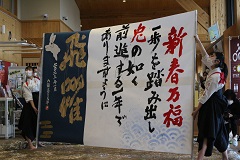 新春万福
一歩を踏み出し
虎の如く
前進する一年で
ありますように
飛躍